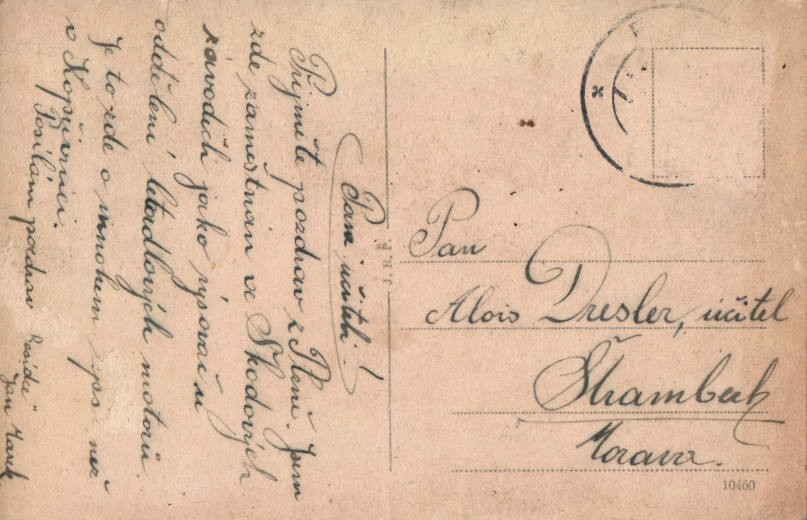 Pane učiteli!
Přijměte pozdrav z Plzně. Jsem
zde zaměstnán ve Škodových
závodech jako rýsovač u
oddělení letadlových motorů.
Je to zde o mnohem lepš než
v Kopřivnici.
Posílám pozdrav
Jan Marek
Pan
Alois Dresler, učitel
Štramberk
Morava.
10460